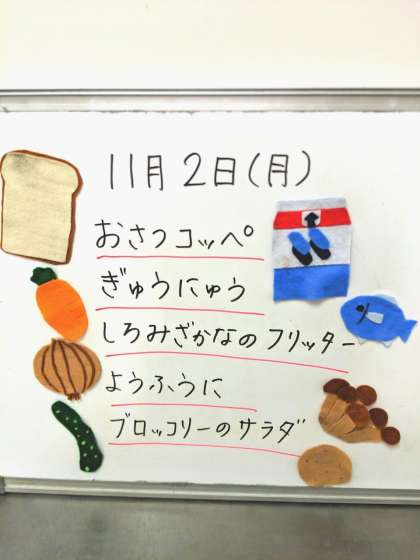 11月2日(月)
おさつコッペ
ぎゅうにゅう
しろみざかなのフリッター
ようふうに
ブロッコリーのサラダ